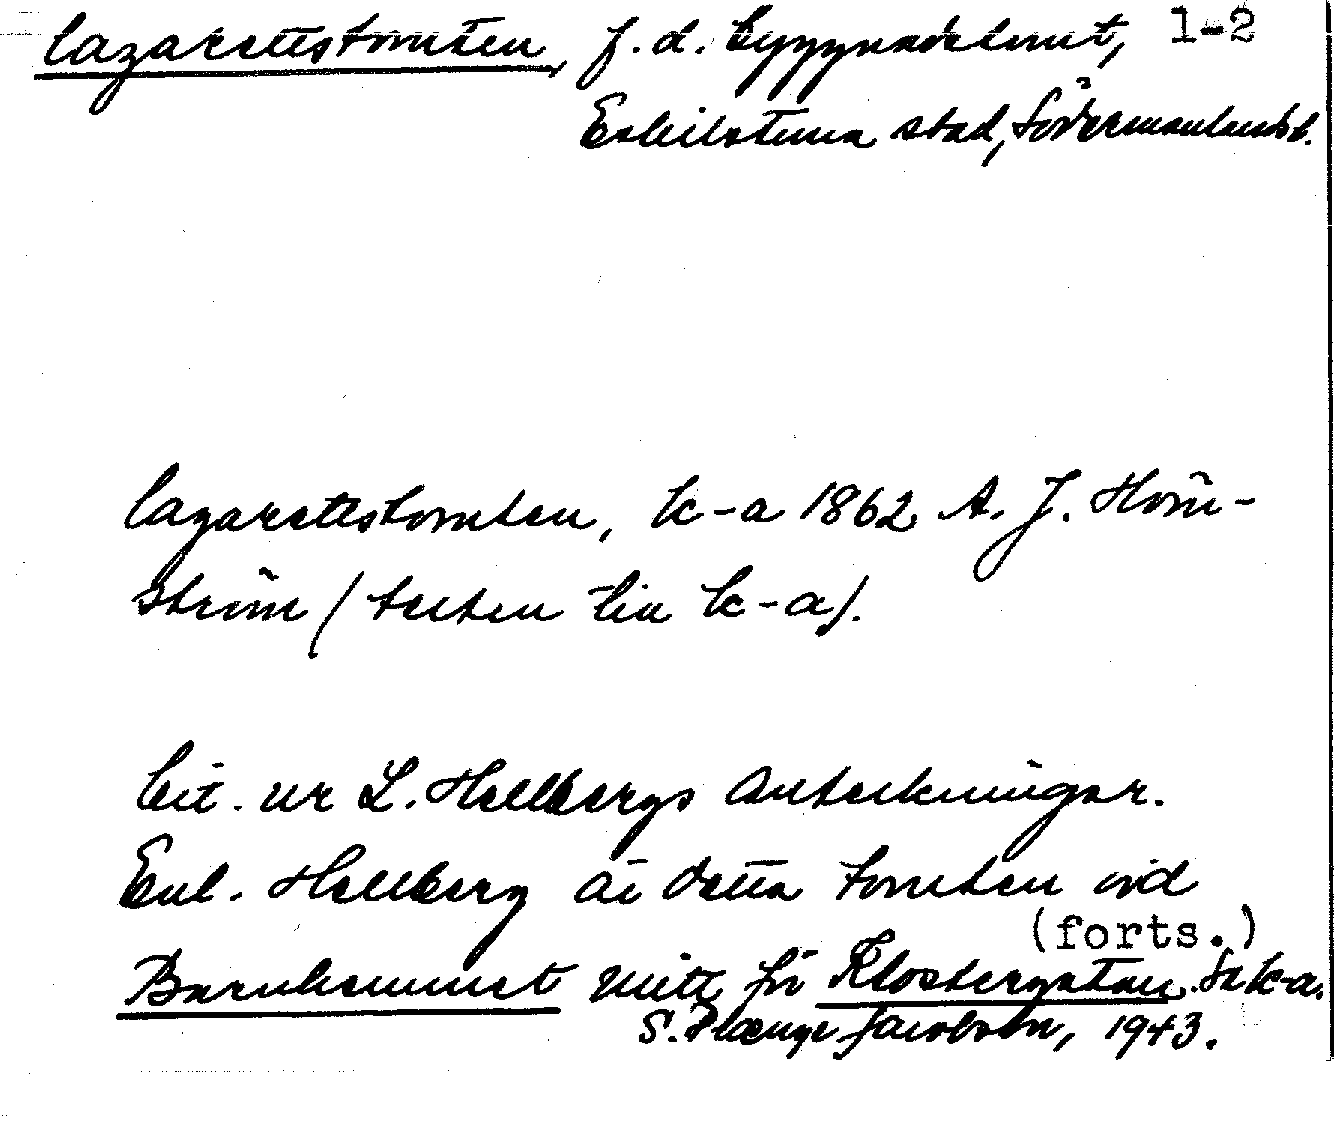 Lazarettstomten, f.d. byggnadstomt, 1-2
Eskilstuna stad, Södermanlands l.
Lazarettstomten, k-a 1862 A. J. Horn-
ström (texten till k-a).
Cit. ur L. Hellbergs anteckningar.
Enl. Hellberg är detta tomten vid
(forts.)
Barnhemmet mitt för Klostergatan. Se k-a.
S. Jacobson, 1943.